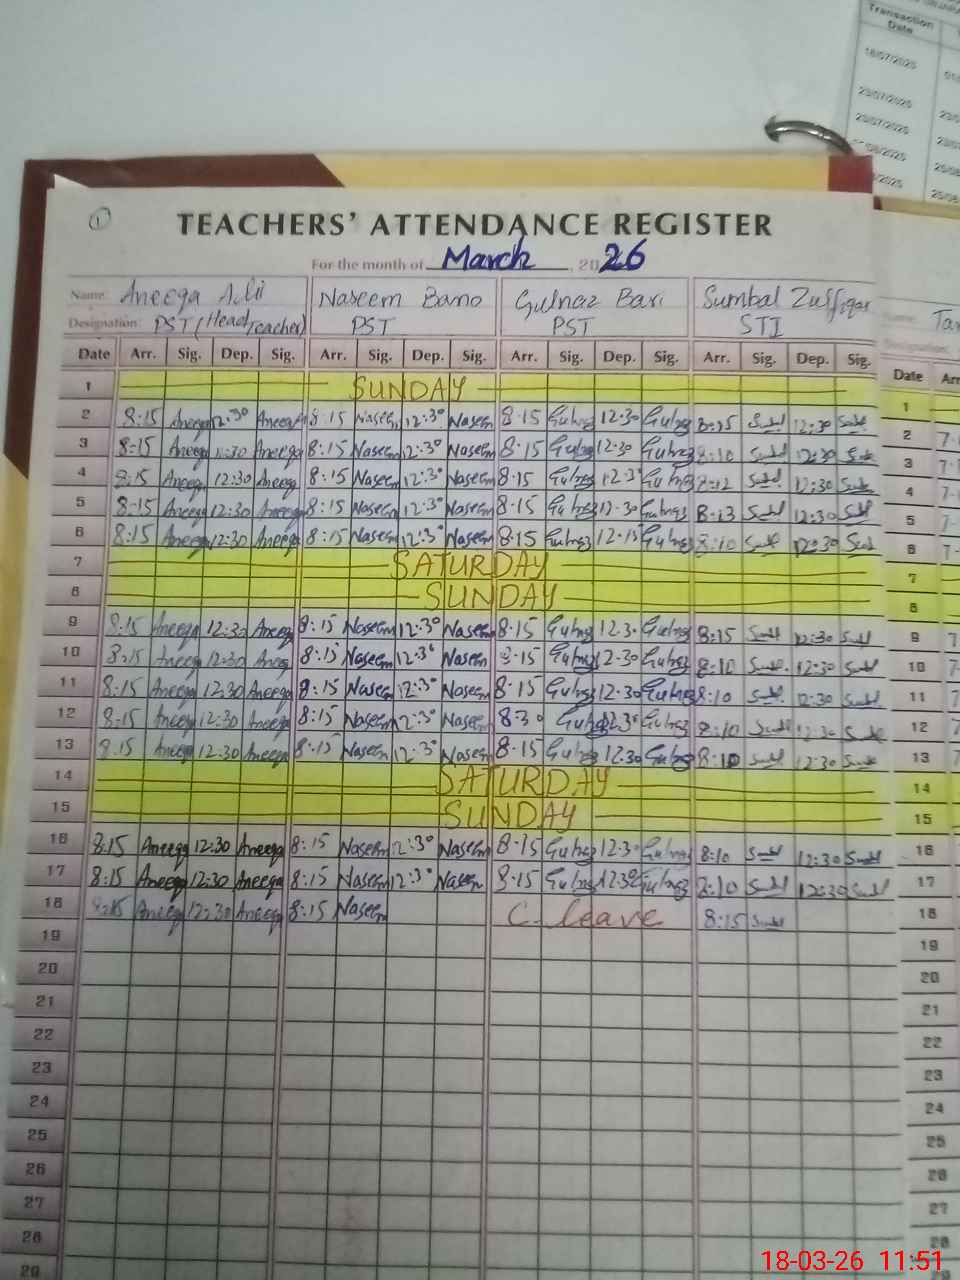 Transaction
Date
18/07/2025
23/07/2025
23/07/2025
1
TEACHERS' ATTENDANCE REGISTER
For the month of March, 2026
Name: Aneeqa Naseem Bano Gulnaz Bari Sumbal Zulfiqar
Designation: PST (Head Teacher) PST PST STI
Date Arr. Sig. Dep. Sig. Arr. Sig. Dep. Sig. Arr. Sig. Dep. Sig. Arr. Sig. Dep. Sig. Date
1 SUNDAY 1
2 8:15 Aneeqa 12:30 Aneeqa 8:15 Naseem 12:30 Naseem 8:15 Gulnaz 12:30 Gulnaz 8:15 Sumbl 12:30 Sumbl 2
3 8:15 Aneeqa 12:30 Aneeqa 8:15 Naseem 12:30 Naseem 8:15 Gulnaz 12:30 Gulnaz 8:10 Sumbl 12:30 3
4 8:15 Aneeqa 12:30 Aneeqa 8:15 Naseem 12:30 Naseem 8:15 Gulnaz 12:3 Gulnaz 8:12 Sumbl 12:30 4
5 8:15 Aneeqa 12:30 Aneeqa 8:15 Naseem 12:30 Naseem 8:15 Gulnaz 12:30 Gulnaz 8:13 Sumbl 12:30 5
6 8:15 Aneeqa 12:30 Aneeqa 8:15 Naseem 12:30 Naseem 8:15 Gulnaz 12:15 Gulnaz 8:10 Sumbl 12:30 6
7 SATURDAY 7
8 SUNDAY 8
9 8:15 Aneeqa 12:30 Aneeqa 8:15 Naseem 12:30 Naseem 8:15 Gulnaz 12:30 Gulnaz 8:15 Sumbl 12:30 Sumbl 9
10 8:15 Aneeqa 12:30 Aneeq 8:15 Naseem 12:30 Naseem 8:15 Gulnaz 12:30 Gulnaz 8:10 Sumbl 12:30 Sumbl 10
11 8:15 Aneeqa 12:30 Aneeqa 8:15 Naseem 12:30 Naseem 8:15 Gulnaz 12:30 Gulnaz 8:10 Sumbl 12:30 Sumbl 11
12 8:15 Aneeqa 12:30 Aneeqa 8:15 Naseem 12:30 Naseem 8:30 Gulnaz 12:30 Gulnaz 8:10 Sumbl 12:30 Sumbl 12
13 8:15 Aneeqa 12:30 Aneeqa 8:15 Naseem 12:30 Naseem 8:15 Gulnaz 12:30 Gulnaz 8:10 Sumbl 12:30 Sumbl 13
14 SATURDAY 14
15 SUNDAY 15
16 8:15 Aneeqa 12:30 Aneeqa 8:15 Naseem 12:30 Naseem 8:15 Gulnaz 12:30 Gulnaz 8:10 Sumbl 12:30 Sumbl 16
17 8:15 Aneeqa 12:30 Aneeqa 8:15 Naseem 12:30 Naseem 8:15 Gulnaz 12:30 Gulnaz 8:10 Sumbl 12:30 Sumbl 17
18 8:15 Aneeqa 12:30 Aneeqa 8:15 Naseem C. leave 8:15 Sumbl 18
19 19
20 20
21 21
22 22
23 23
24 24
25 25
26 26
27 27
28 28
29
18-03-26 11:51